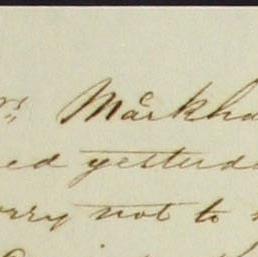 Mrs Markha
ed yesterda
orry not to